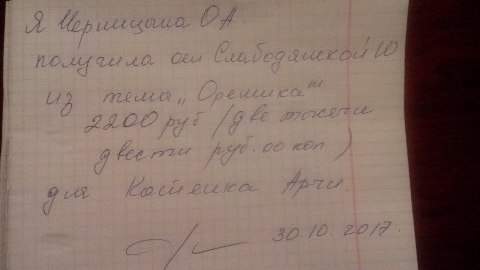 Я Мерлицына О А.
получила от Слабодянской Ю
из тема „Орешка"
2200 руб (две тысячи
двести руб. 00 коп)
для Котенка Арчи
30.10.2017.